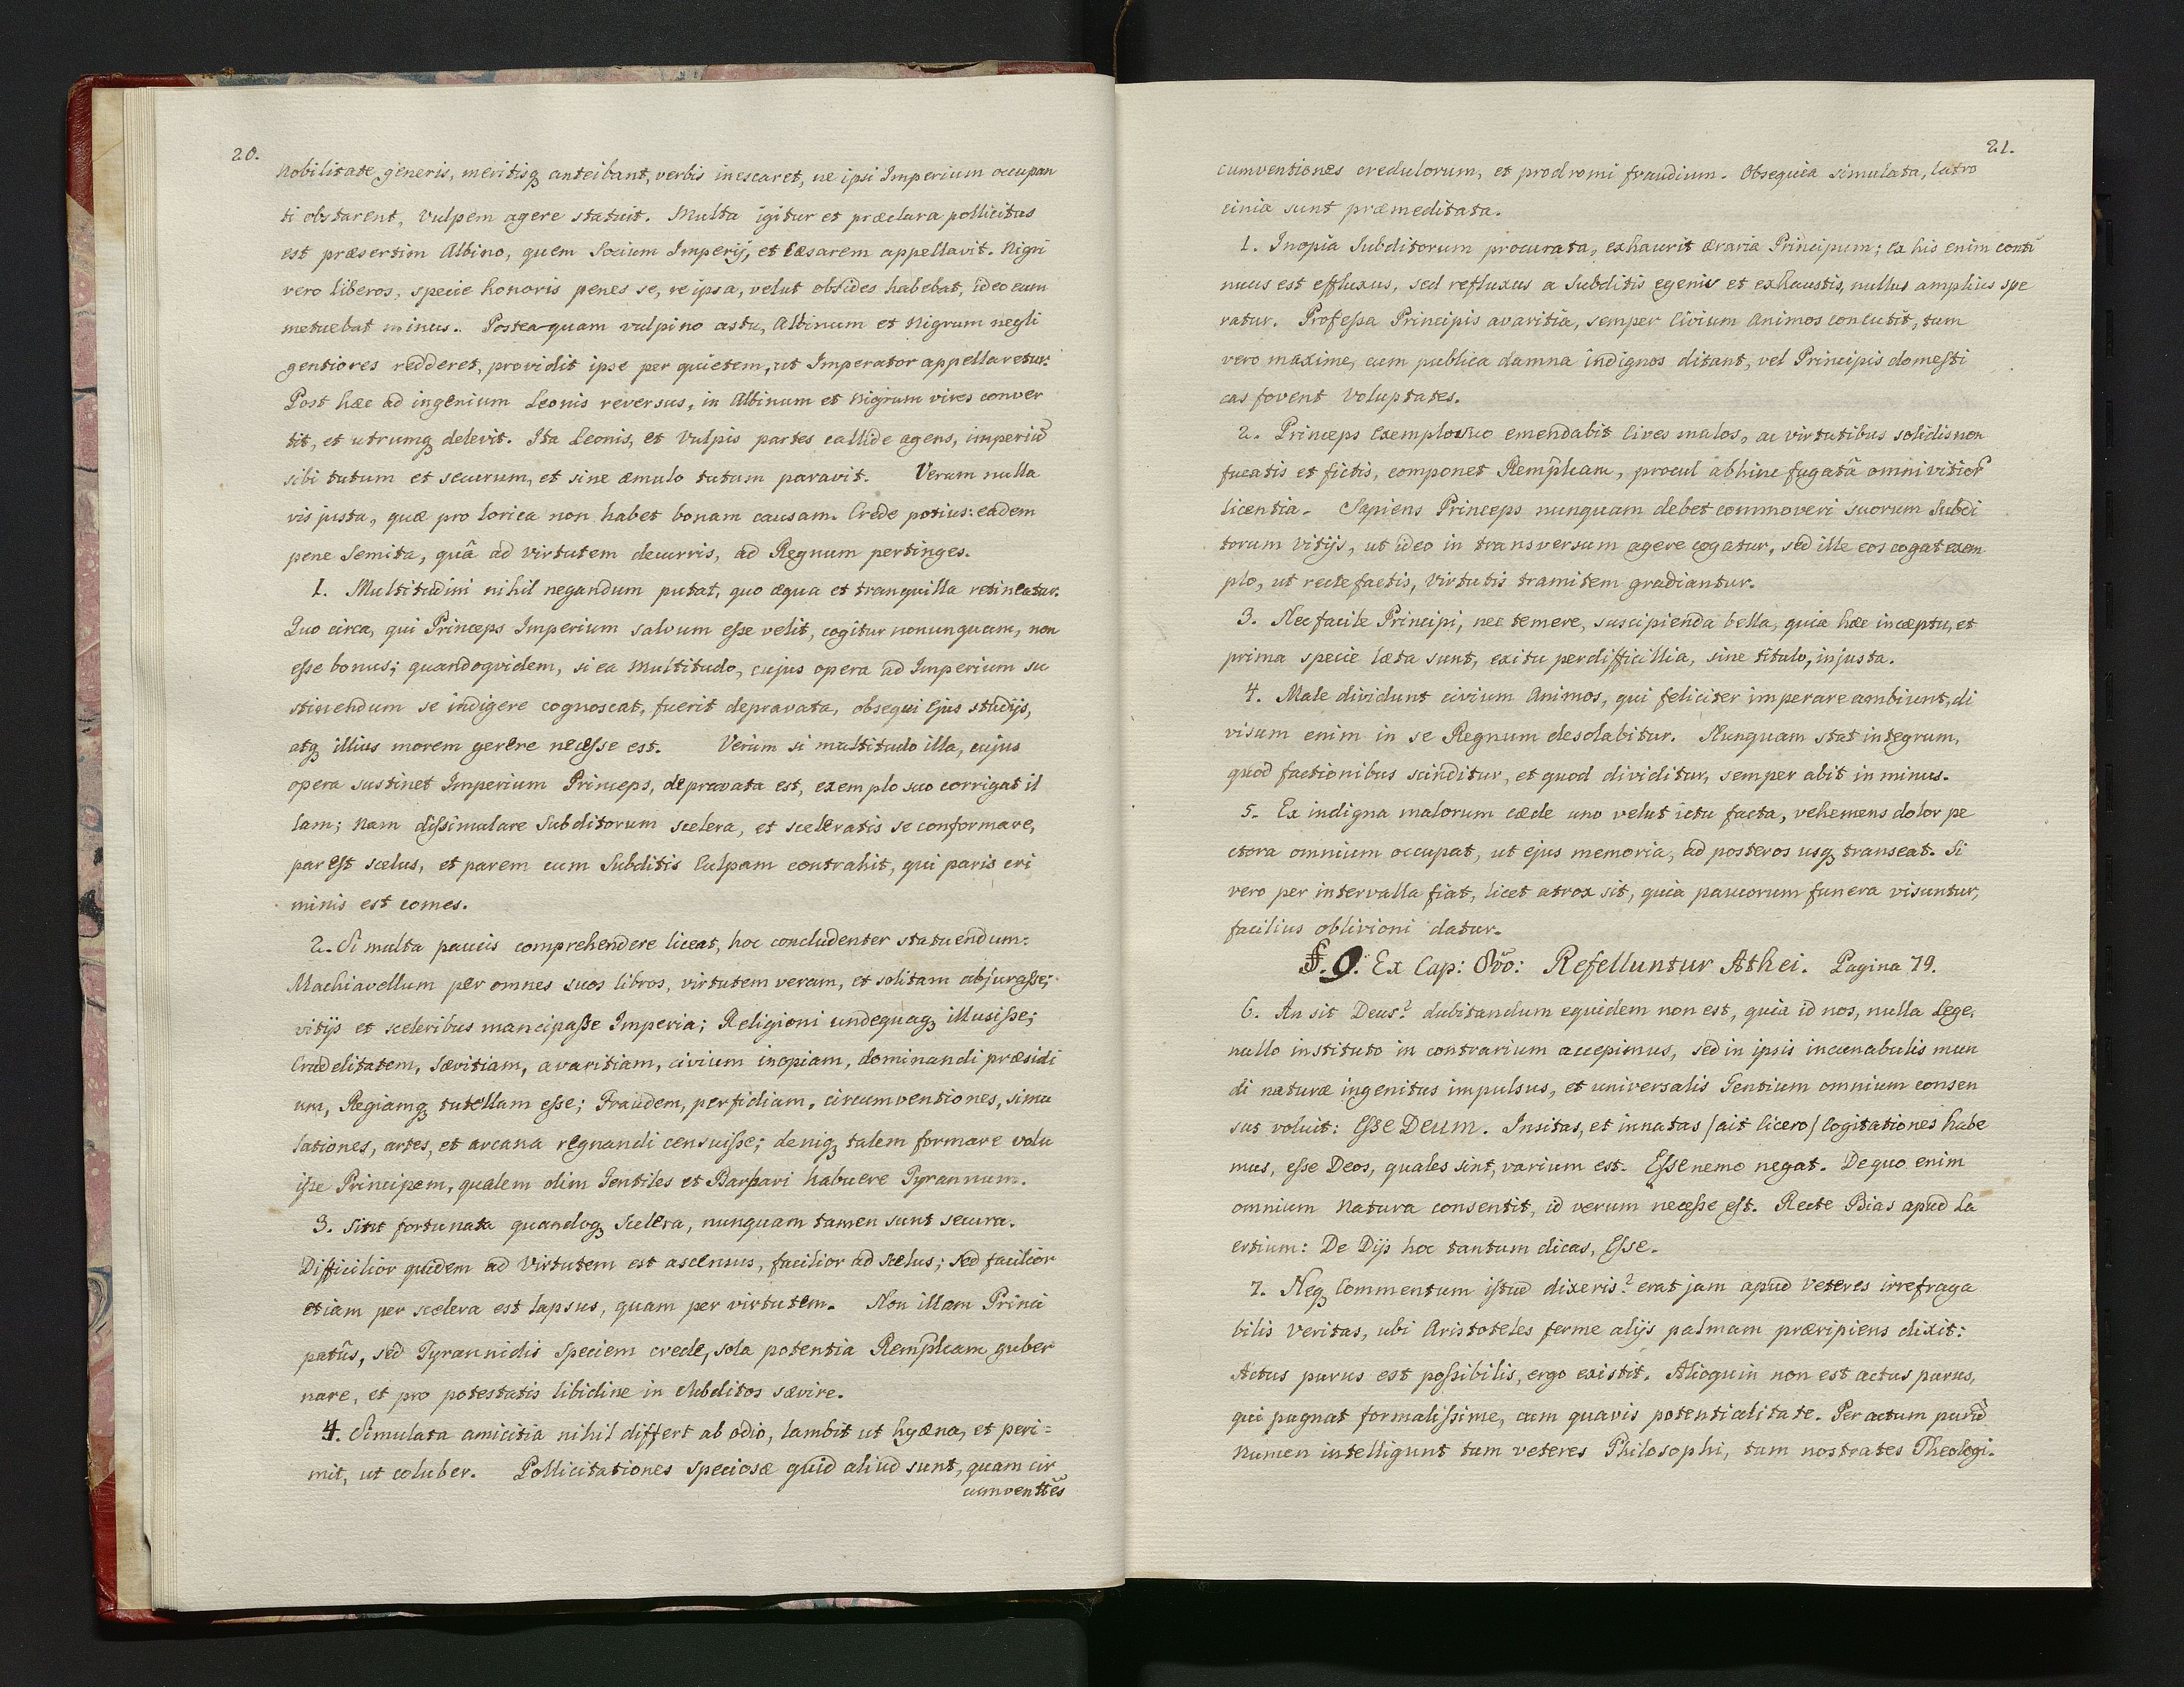 20.
nobilitate generis, meritisq anteibant, verbis inescaret, ne ipsi Imperium occupan
ti obstarent, Vulpem agere statuit. Multa igitur et præclara pollicitus
est præsertim Albino, quem Socium Imperij, et Cæsarem appellavit. Nigri
vero liberos, specie honoris penes se, re ipsa, velut obsides habebat, ideo eum
metuebat minus. Postea quam vulpino astu, Albinum et Nigrum negli
gentiores redderet, providit ipse per quietem, ut Imperator appellaretur.
Post hæc ad ingenium Leonis reversus, in Albinum et Nigrum vires conver
tit, et utrumq delevit. Ita Leonis, et Vulpis partes callide agens, imperiũ
sibi tutum et securum, et sine æmulo tutum paravit. Verum nulla
vis justa, quæ pro lorica non habet bonam causam. Crede potius: eadem
pene Semita, quâ ad virtutem decurris, ad Regnum pertinges.
1. Multitudini nihil negandum putat, quo æqua et tranquilla retineatur.
Quo circa, qui Princeps Imperium salvum esse velit, cogitur nonunquam, non
esse bonus; quandoqvidem, si ea Multitudo, cujus opera ad Imperium su
stinendum se indigere cognoscat, fuerit depravata, obsequi Ejus studijs,
atq illius morem gerere necesse est. Verùm si multitudo illa, cujus
opera sustinet Imperium Princeps, depravata est, exemplo suo corrigat il
lam; nam dissimulare Subditorum scelera, et sceleratis se conformare,
par est scelus, et parem cum Subditis Culpam contrahit, qui paris cri
minis est comes.
2. Si multa paucis comprehendere liceat, hoc concludenter statuendum:
Machiavellum per omnes suos libros, virtutem veram, et solitam abjurasse;
vitijs et sceleribus mancipasse Imperia; Religioni undequaq illusisse;
Crudelitatem, Sævitiam, avaritiam, civium inopiam, dominandi præsidi
um, Regiamq tutellam esse; Fraudem, perfidiam, circumventiones, simu
lationes, artes, et arcana regnandi censuisse; deniq talem formare volu
isse Principem, qualem olim Gentiles et Barbari habuere Tyrannum.
3. Sint fortunata quandoq Scelera, nunquam tamen sunt secura.
Difficilior quidem ad Virtutem est ascensus, facilior ad scelus; sed facilior
etiam per scelera est lapsus, quam per virtutem. Non illam Princi
patûs, sed Tyrannidis Speciem crede, sola potentia Remplicam guber
nare, et pro potestatis libidine in Subditos sævire.
4. Simulata amicitia nihil differt ab odio, lambit ut hyæna, et peri=
mit, ut coluber. Pollicitationes speciosæ quid aliud sunt, quam cir
cumventẽs
21.
cumventiones credulorum, et prodromi fraudium. Obsequia simulata, latro
cinia sunt præmeditata.
1. Inopia Subditorum procurata, exhaurit æraria Principum; Ex his enim conti
nuus est effluxus, sed refluxus a Subditis egenis et exhaustis, nullus amplius spe
ratur. Professa Principis avaritia, semper Civium Animos concutit, tum
vero maxime, cum publica damna indignos ditant, vel Principis domesti
cas fovent Voluptates.
2. Princeps Exemplo suo emendabit Cives malos, ac virtutibus solidis non
fucatis et fictis, componet Remplicam, procul abhinc fugatâ omni vitior
licentia. Sapiens Princeps nunquam debet commoveri suorum Subdi
torum Vitijs, ut ideo in transversum agere cogatur, sed ille eos cogat exem
plo, ut recte factis, Virtutis tramitem gradiantur.
3. Nec facile Principi, nec temere, suscipienda bella, quia hæc incæptu, et
prima specie læta sunt, exitu perdifficillia, sine titulo, injusta.
4. Male dividunt civium Animos, qui feliciter imperare ambiunt, di
visum enim in se Regnum desolabitur. Nunquam stat integrum,
quod factionibus scinditur, et quod dividitur, semper abit in minus.
5. Ex indigna malorum cæde uno velut ictu facta, vehemens dolor pe
ctora omnium occupat, ut ejus memoria, ad posteros usq transeat. Si
vero per intervalla fiat, licet atrox sit, quia paucorum funera visuntur,
facilius oblivioni datur.
§. 9. Ex Cap: 8vo: Refelluntur Athei. Pagina 79.
6. An sit Deus? dubitandum equidem non est, quia id nos, nulla Lege,
nullo instituto in contrarium accepimus, sed in ipsis incunabulis mun
di naturæ ingenitus impulsus, et universalis Gentium omnium consen
sus voluit: Esse Deum. Insitas, et innatas /ait Cicero/ Cogitationes habe
mus, esse Deos, quales sint, varium est. Esse nemo negat. De quo enim
omnium Natura consentit, id verum necesse est. Recte Bias apud La
ertium: De Dijs hoc tantum dicas, Esse.
7. Neq Commentum istud dixeris? erat jam apud Veteres irrefraga
bilis Veritas, ubi Aristoteles ferme alijs palmam præripiens dixit:
Actus purus est possibilis, ergo existit. Alioquin non est actus purus,
qui pugnat formalissime, cum quavis potentialitate. Per actum purũ
Numen intelligunt tum veteres Philosophi, tum nostrates Theologi.